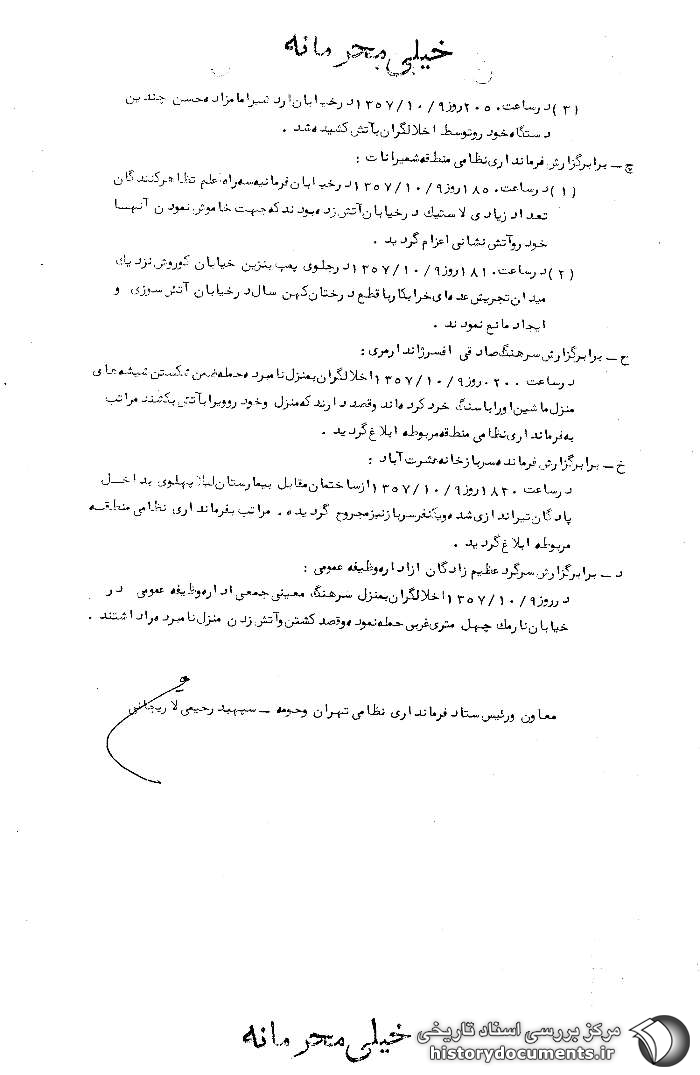 خیلی محرمانه
(۳) در ساعت ۲۰۵۰ روز ۱۳۵۷/۱۰/۹ در خیابان ارد شیر امامزاده حسن چندین
دستگاه خود رو توسط اخلالگران بآتش کشیده شد .
چ – برابر گزارش فرمانداری نظامی منطقه شمیرانات :
(۱) در ساعت ۱۸۵۰ روز ۱۳۵۷/۱۰/۹ در خیابان فرمانیه سه راه علم تظاهر کنندگان
تعداد زیادی لاستیک در خیابان آتش زده بودند که جهت خاموش نمودن آنها
خود رو آتش نشانی اعزام گردید .
(۲) در ساعت ۱۸۱۰ روز ۱۳۵۷/۱۰/۹ در جلوی پمپ بنزین خیابان کوروش نزدیک
میدان تجریش عده ای خرابکار با قطع درختان کهن سال در خیابان آتش سوزی و
ایجاد مانع نمودند .
ح – برابر گزارش سرهنگ صادقی افسر ژاندارمری :
در ساعت ۲۰۰۰ روز ۱۳۵۷/۱۰/۹ اخلالگران بمنزل نامبرده حمله ضمن شکستن شیشه های
منزل ماشین او را با سنگ خرد کرده اند و قصد دارند که منزل و خود رو ویرا بآتش بکشند مراتب
به فرمانداری نظامی منطقه مربوطه ابلاغ گردید .
خ – برابر گزارش فرمانده سربازخانه عشرت آباد :
در ساعت ۱۸۳۰ روز ۱۳۵۷/۱۰/۹ از ساختمان مقابل بیمارستان لیلا پهلوی بداخل
پادگان تیراندازی شده و یکنفر سرباز نیز مجروح گردیده . مراتب بفرمانداری نظامی منطقه
مربوطه ابلاغ گردید .
د – برابر گزارش سرگرد عظیم زادگان از اداره وظیفه عمومی :
در روز ۱۳۵۷/۱۰/۹ اخلالگران بمنزل سرهنگ معینی جمعی اداره وظیفه عمومی در
خیابان نارمک چهل متری غربی حمله نموده و قصد کشتن و آتش زدن منزل نامبرده را داشتند .
معاون و رئیس ستاد فرمانداری نظامی تهران و حومه – سپهبد رحیمی لاریجانی
خیلی محرمانه
مرکز بررسی اسناد تاریخی
historydocuments.ir